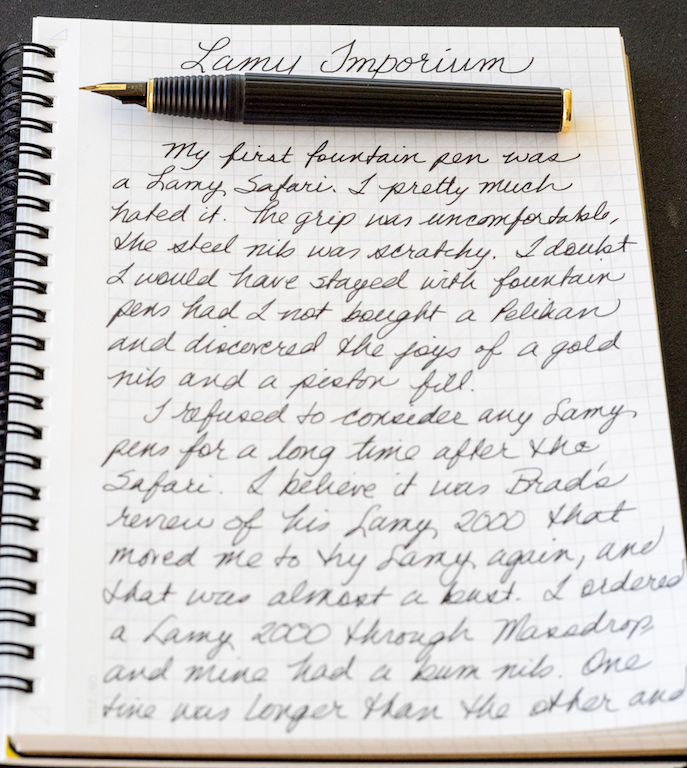 Lamy Imporium
My first fountain pen was
a Lamy Safari. I pretty much
hated it. The grip was uncomfortable,
the steel nib was scratchy. I doubt
I would have stayed with fountain
pens had I not bought a Pelikan
and discovered the joys of a gold
nib and a piston fill.
I refused to consider any Lamy
pens for a long time after the
Safari. I believe it was Brad's
review of his Lamy 2000 that
moved me to try Lamy again, and
that was almost a bust. I ordered
a Lamy 2000 through Massdrop
and mine had a bum nib. One
tine was longer than the other and